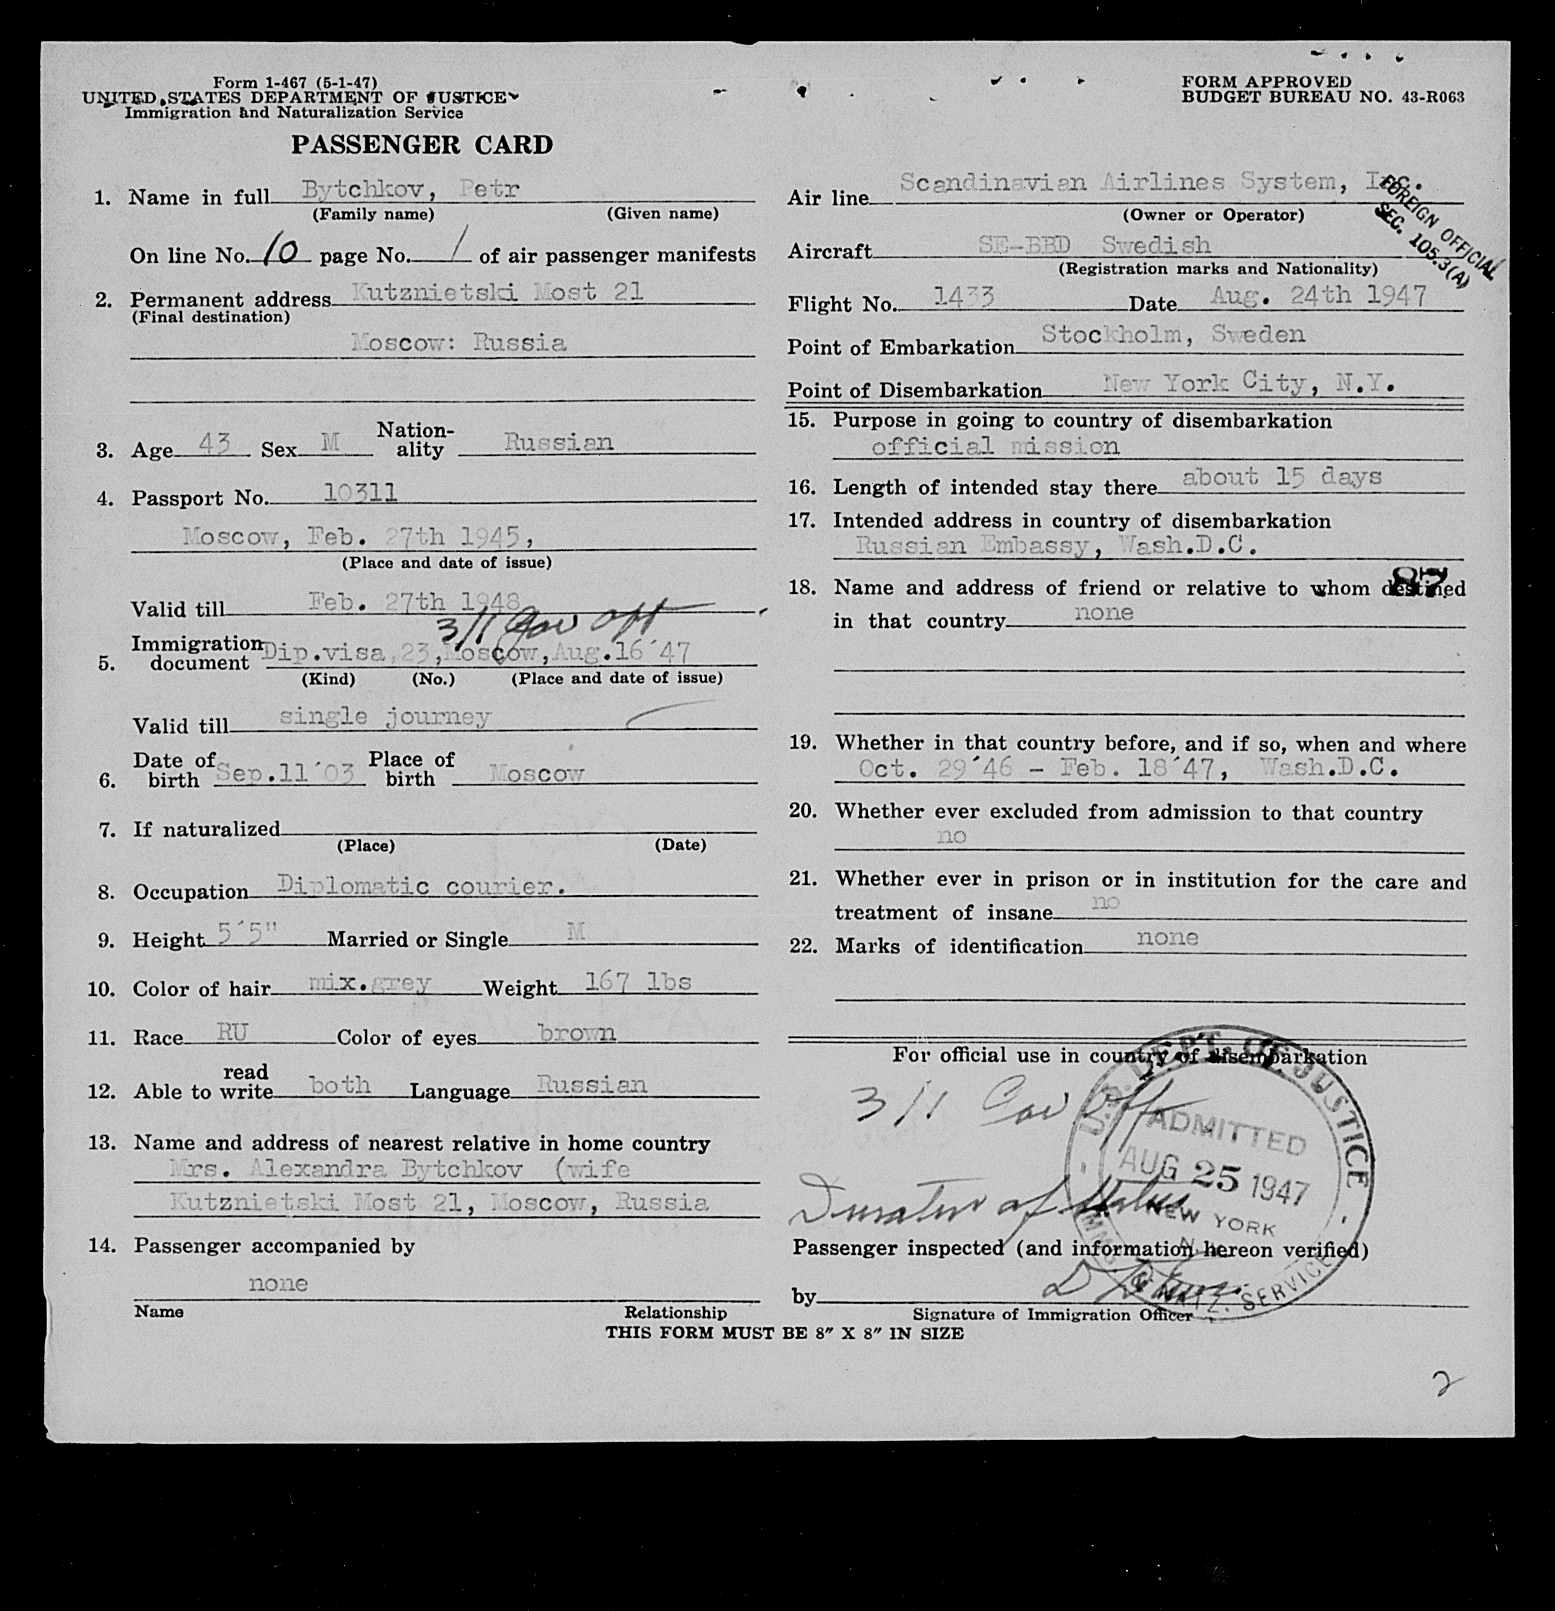 Form 1-467 (5-1-47)
UNITED STATES DEPARTMENT OF JUSTICE
Immigration and Naturalization Service
PASSENGER CARD
FORM APPROVED
BUDGET BUREAU NO. 43-R063
1. Name in full Bytchkov, Petr
(Family name) (Given name)
On line No. 10 page No. 1 of air passenger manifests
2. Permanent address Kutznietski Most 21
(Final destination)
Moscow: Russia
3. Age 43 Sex M Nation-ality Russian
4. Passport No. 10311
Moscow, Feb. 27th 1945,
(Place and date of issue)
Valid till Feb. 27th 1948
3/1 Gov Off
5. Immigration document Dip.visa,23,Moscow,Aug.16´47
(Kind) (No.) (Place and date of issue)
Valid till single journey
6. Date of birth Sep.11´03 Place of birth Moscow
7. If naturalized
(Place) (Date)
8. Occupation Diplomatic courier.
9. Height 5´5" Married or Single M
10. Color of hair mix.grey Weight 167 lbs
11. Race RU Color of eyes brown
12. Able to read write both Language Russian
13. Name and address of nearest relative in home country
Mrs. Alexandra Bytchkov (wife
Kutznietski Most 21, Moscow, Russia
14. Passenger accompanied by
none
Name Relationship
Air line Scandinavian Airlines System, Inc.
(Owner or Operator)
FOREIGN OFFICIAL
SEC. 105.3(A)
Aircraft SE-BBD Swedish
(Registration marks and Nationality)
Flight No. 1433 Date Aug. 24th 1947
Point of Embarkation Stockholm, Sweden
Point of Disembarkation New York City, N.Y.
15. Purpose in going to country of disembarkation
official mission
16. Length of intended stay there about 15 days
17. Intended address in country of disembarkation
Russian Embassy, Wash.D.C.
87
18. Name and address of friend or relative to whom destined
in that country none
19. Whether in that country before, and if so, when and where
Oct. 29´46 - Feb. 18´47, Wash.D.C.
20. Whether ever excluded from admission to that country
no
21. Whether ever in prison or in institution for the care and
treatment of insane no
22. Marks of identification none
For official use in country of disembarkation
3/1 Gov Off
Duration of Status
U.S. DEPT. OF JUSTICE
ADMITTED
AUG 25 1947
NEW YORK
N.Y.
IMMIG. & NATZ. SERVICE
Passenger inspected (and information hereon verified)
by
Signature of Immigration Officer
THIS FORM MUST BE 8″ X 8″ IN SIZE
2